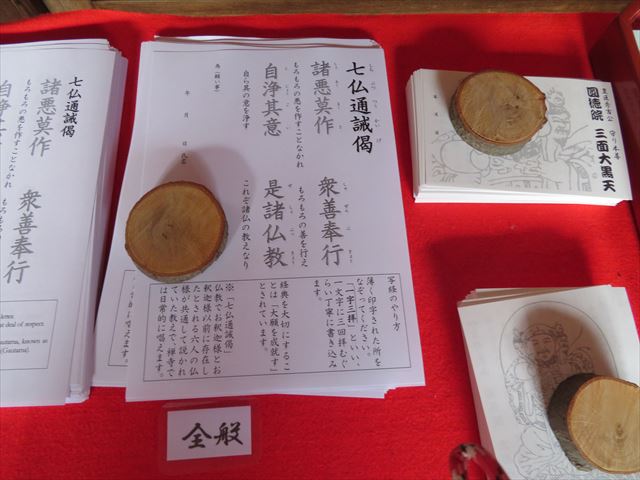 七仏通誡偈
諸悪莫作
もろもろの悪を作すことなかれ
衆善奉行
もろもろの善を行え
自浄其意
自ら其の意を浄す
是諸仏教
これぞ諸仏の教えなり
為(願い事)
年 月 日 氏名
写経のやり方
薄く印字された所を
なぞってください。
「一字三拝」といい、
一文字に三回拝むぐ
らい丁寧に書き込み
ます。
経典を大切にするこ
とは「大願を成就す」
とされています。
※「七仏通誡偈」
仏教でお釈迦様とお
釈迦様以前に存在し
たとされる六人の仏
様が共通して説かれ
ていた教えで、禅寺で
は日常的に唱えます。
七仏通誡偈
諸悪莫作
もろもろの悪を作すことなかれ
衆善奉行
もろもろの善を行え
自浄其
great deal of respect.
Gautama, known as
(Gautama).
豊臣秀吉公 守り本尊
圓徳院 三面大黒天
年 月 日
全般